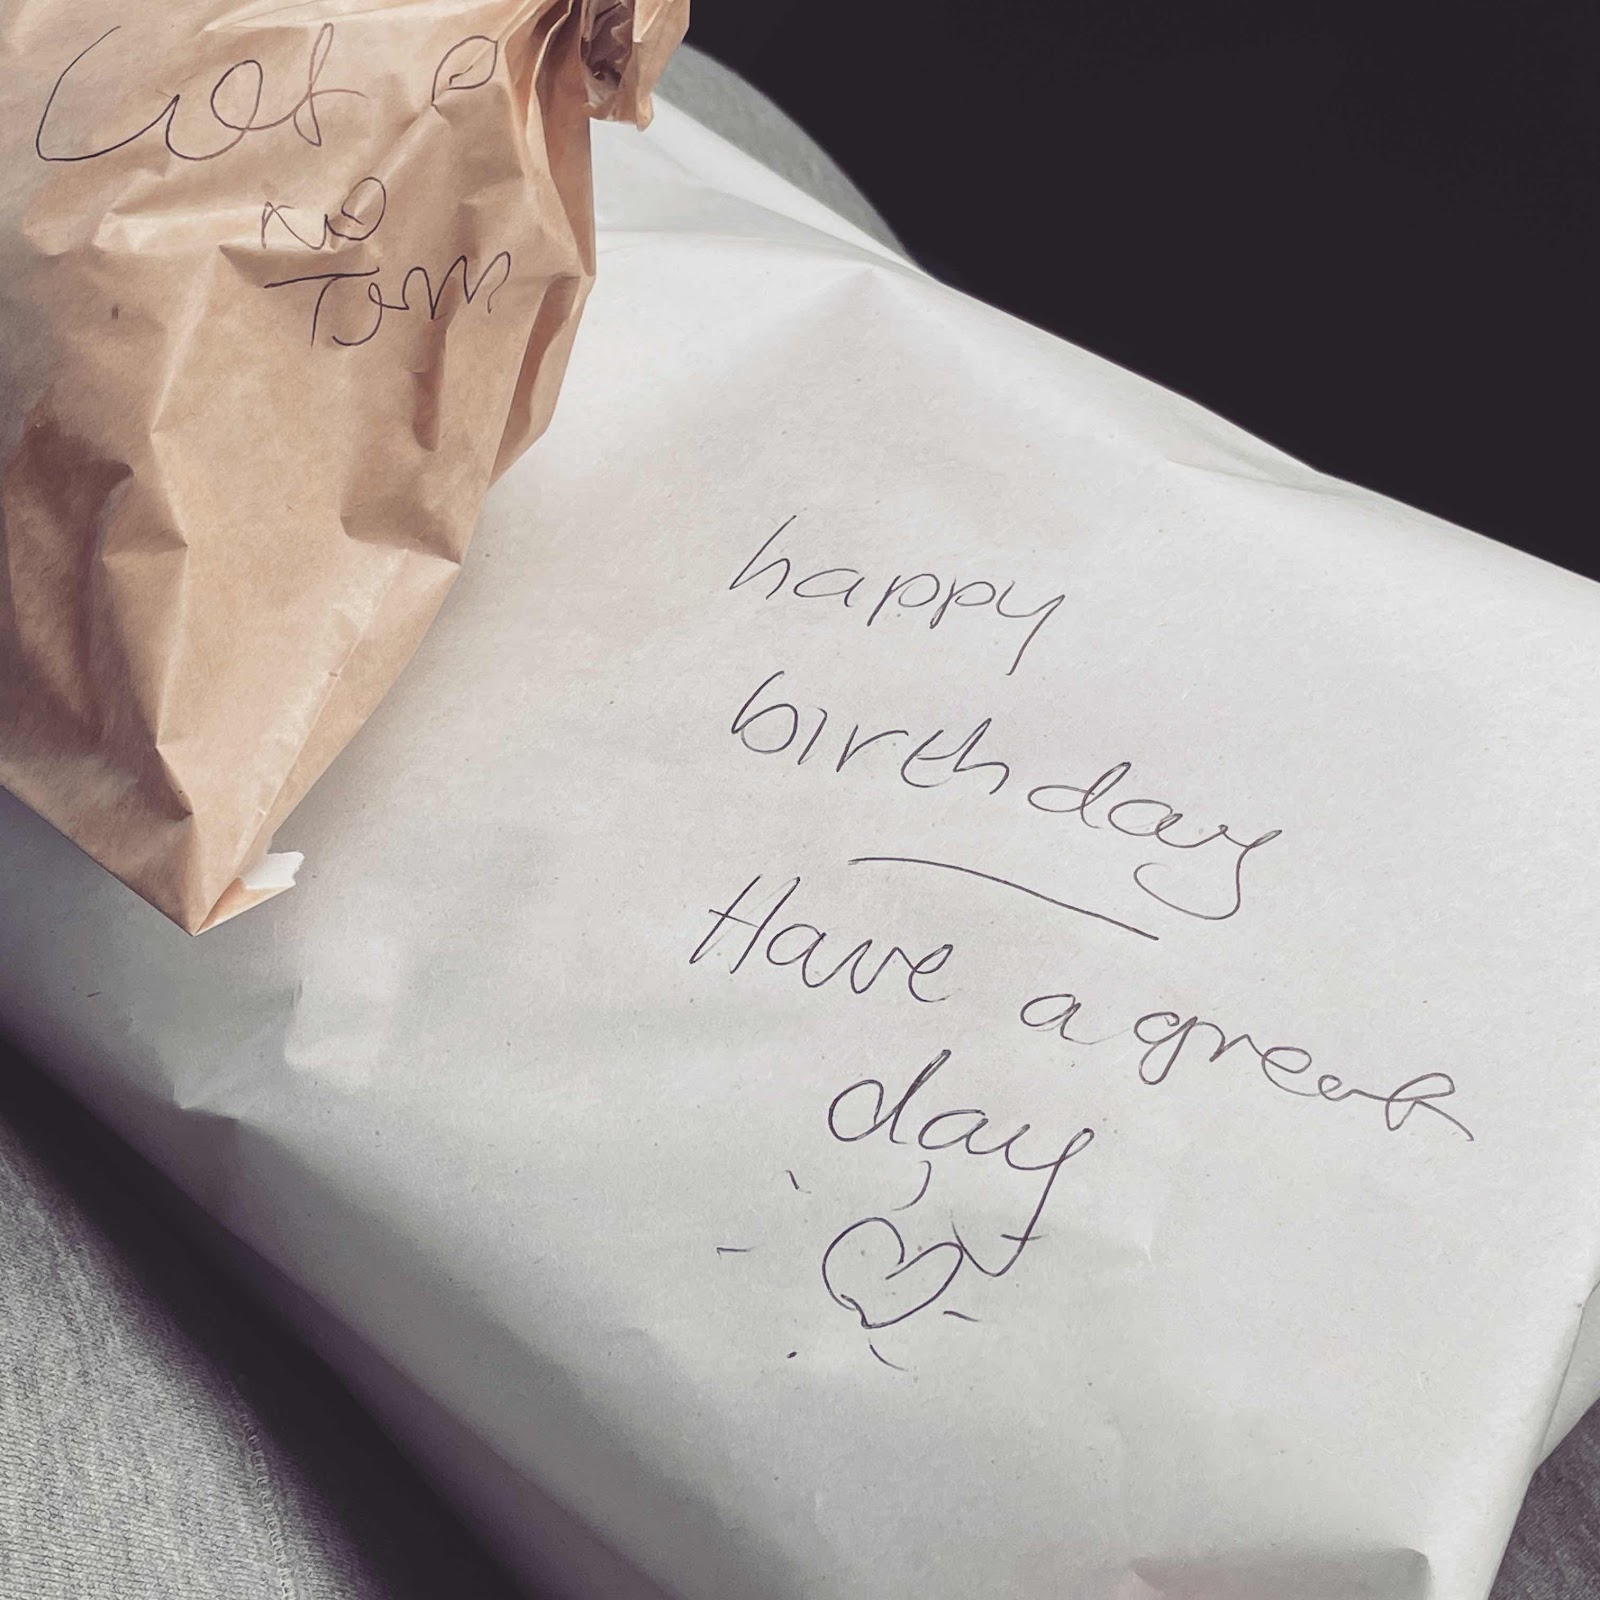 NO
Tom
happy
birthday
Have a great
day